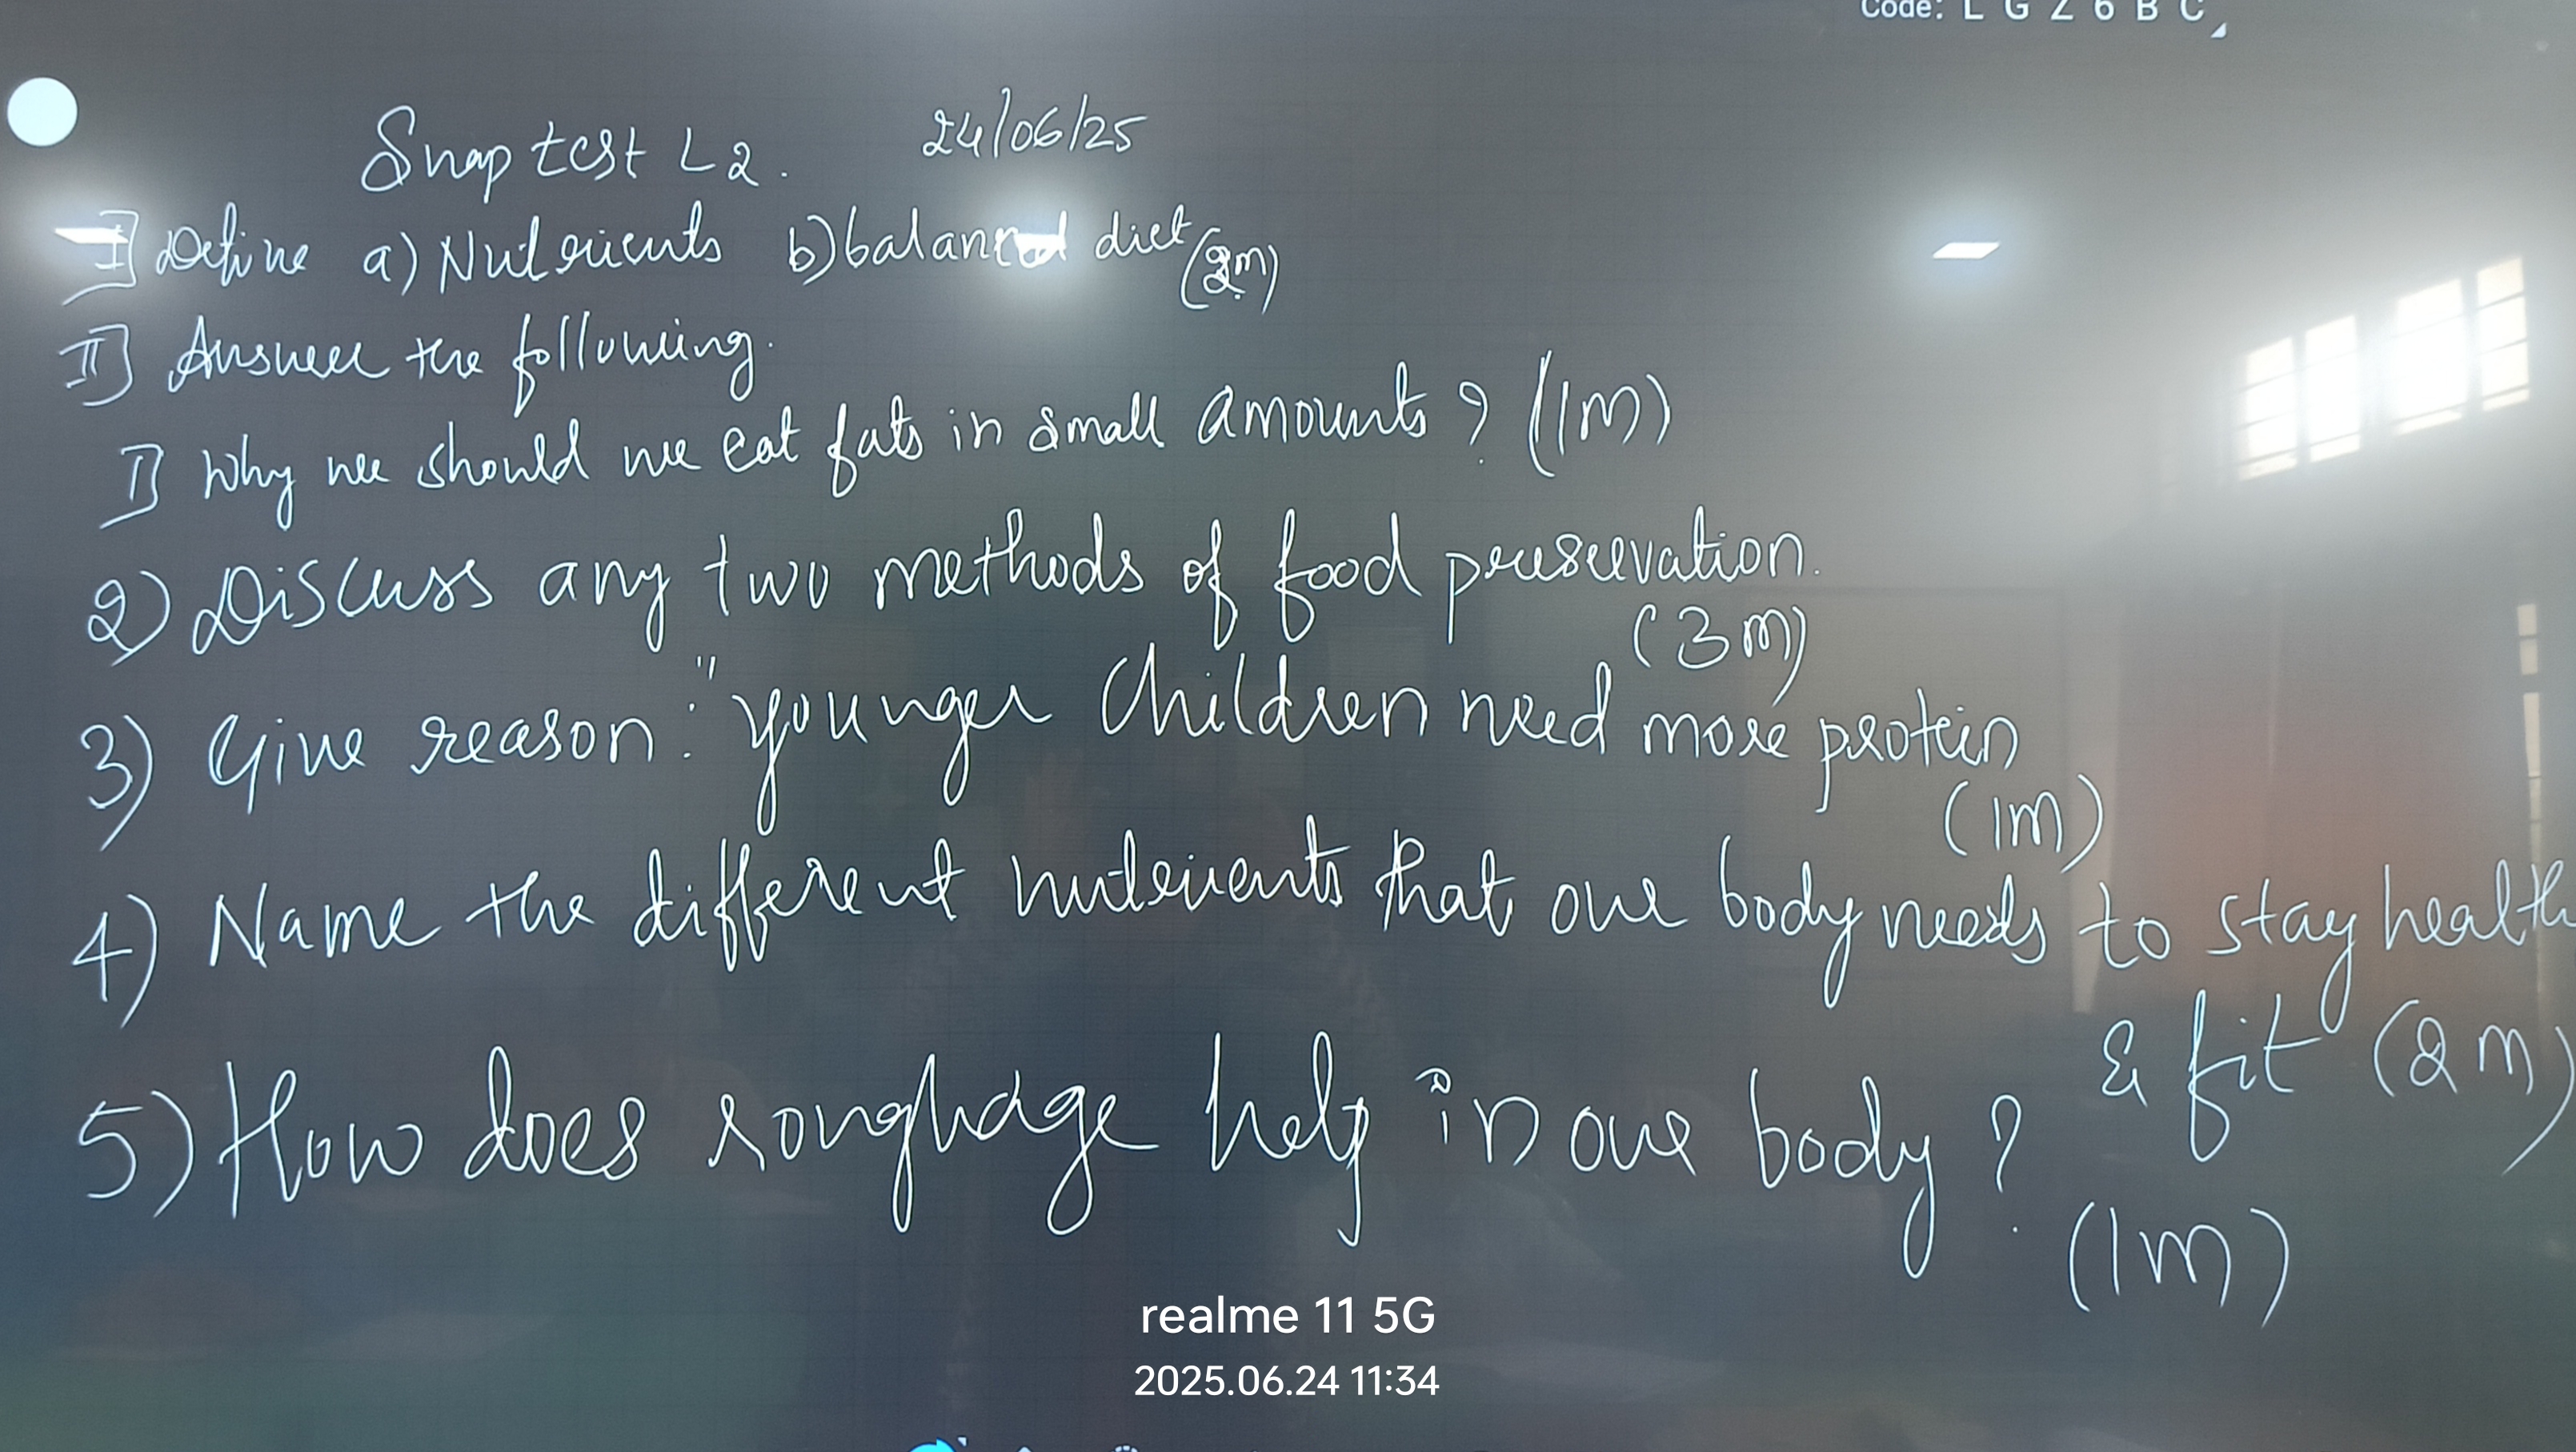 Code: L G Z 6 B C
Snap test L2. 24/06/25
I] Define a) Nutrients b) balanced diet (2m)
II] Answer the following.
1] Why we should we eat fats in small amounts? (1m)
2) Discuss any two methods of food preservation.
(3m)
3) Give reason: "younger children need more protein
(1m)
4) Name the different nutrients that our body needs to stay health
& fit (2m)
5) How does roughage help in our body?
(1m)
realme 11 5G
2025.06.24 11:34